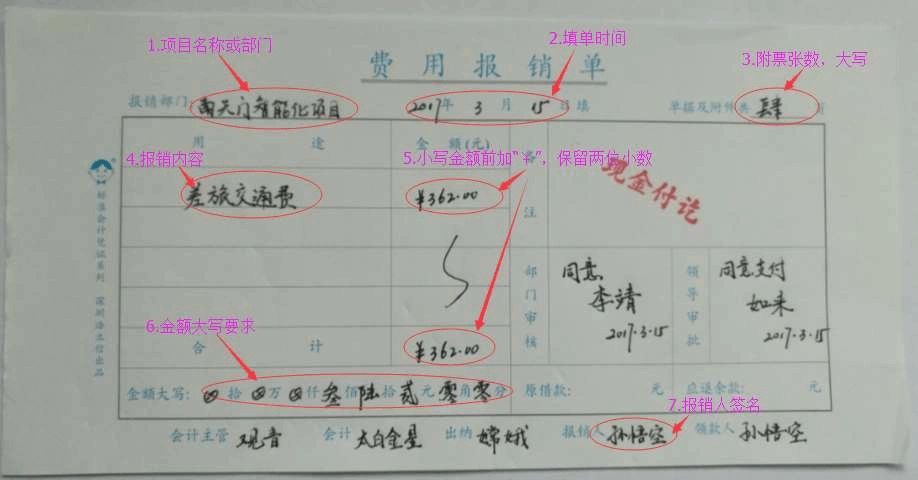 1.项目名称或部门
2.填单时间
3.附票张数，大写
费用报销单
报销部门：南天门智能化项目 2017年 3月 15日填 单据及附件共 肆 页
用途 金额(元) 备注
4.报销内容
5.小写金额前加“￥”，保留两位小数
差旅交通费 ¥362.00
现金付讫
部门审核 同意 李靖 2017.3.15
领导审批 同意支付 如来 2017.3.15
6.金额大写要求
合计 ¥362.00
金额大写：⊕拾⊕万⊕仟叁佰陆拾贰元零角零分 原借款： 元 应退余款： 元
7.报销人签名
会计主管 观音 会计 太白金星 出纳 嫦娥 报销人 孙悟空 领款人 孙悟空
标准会计凭证系列